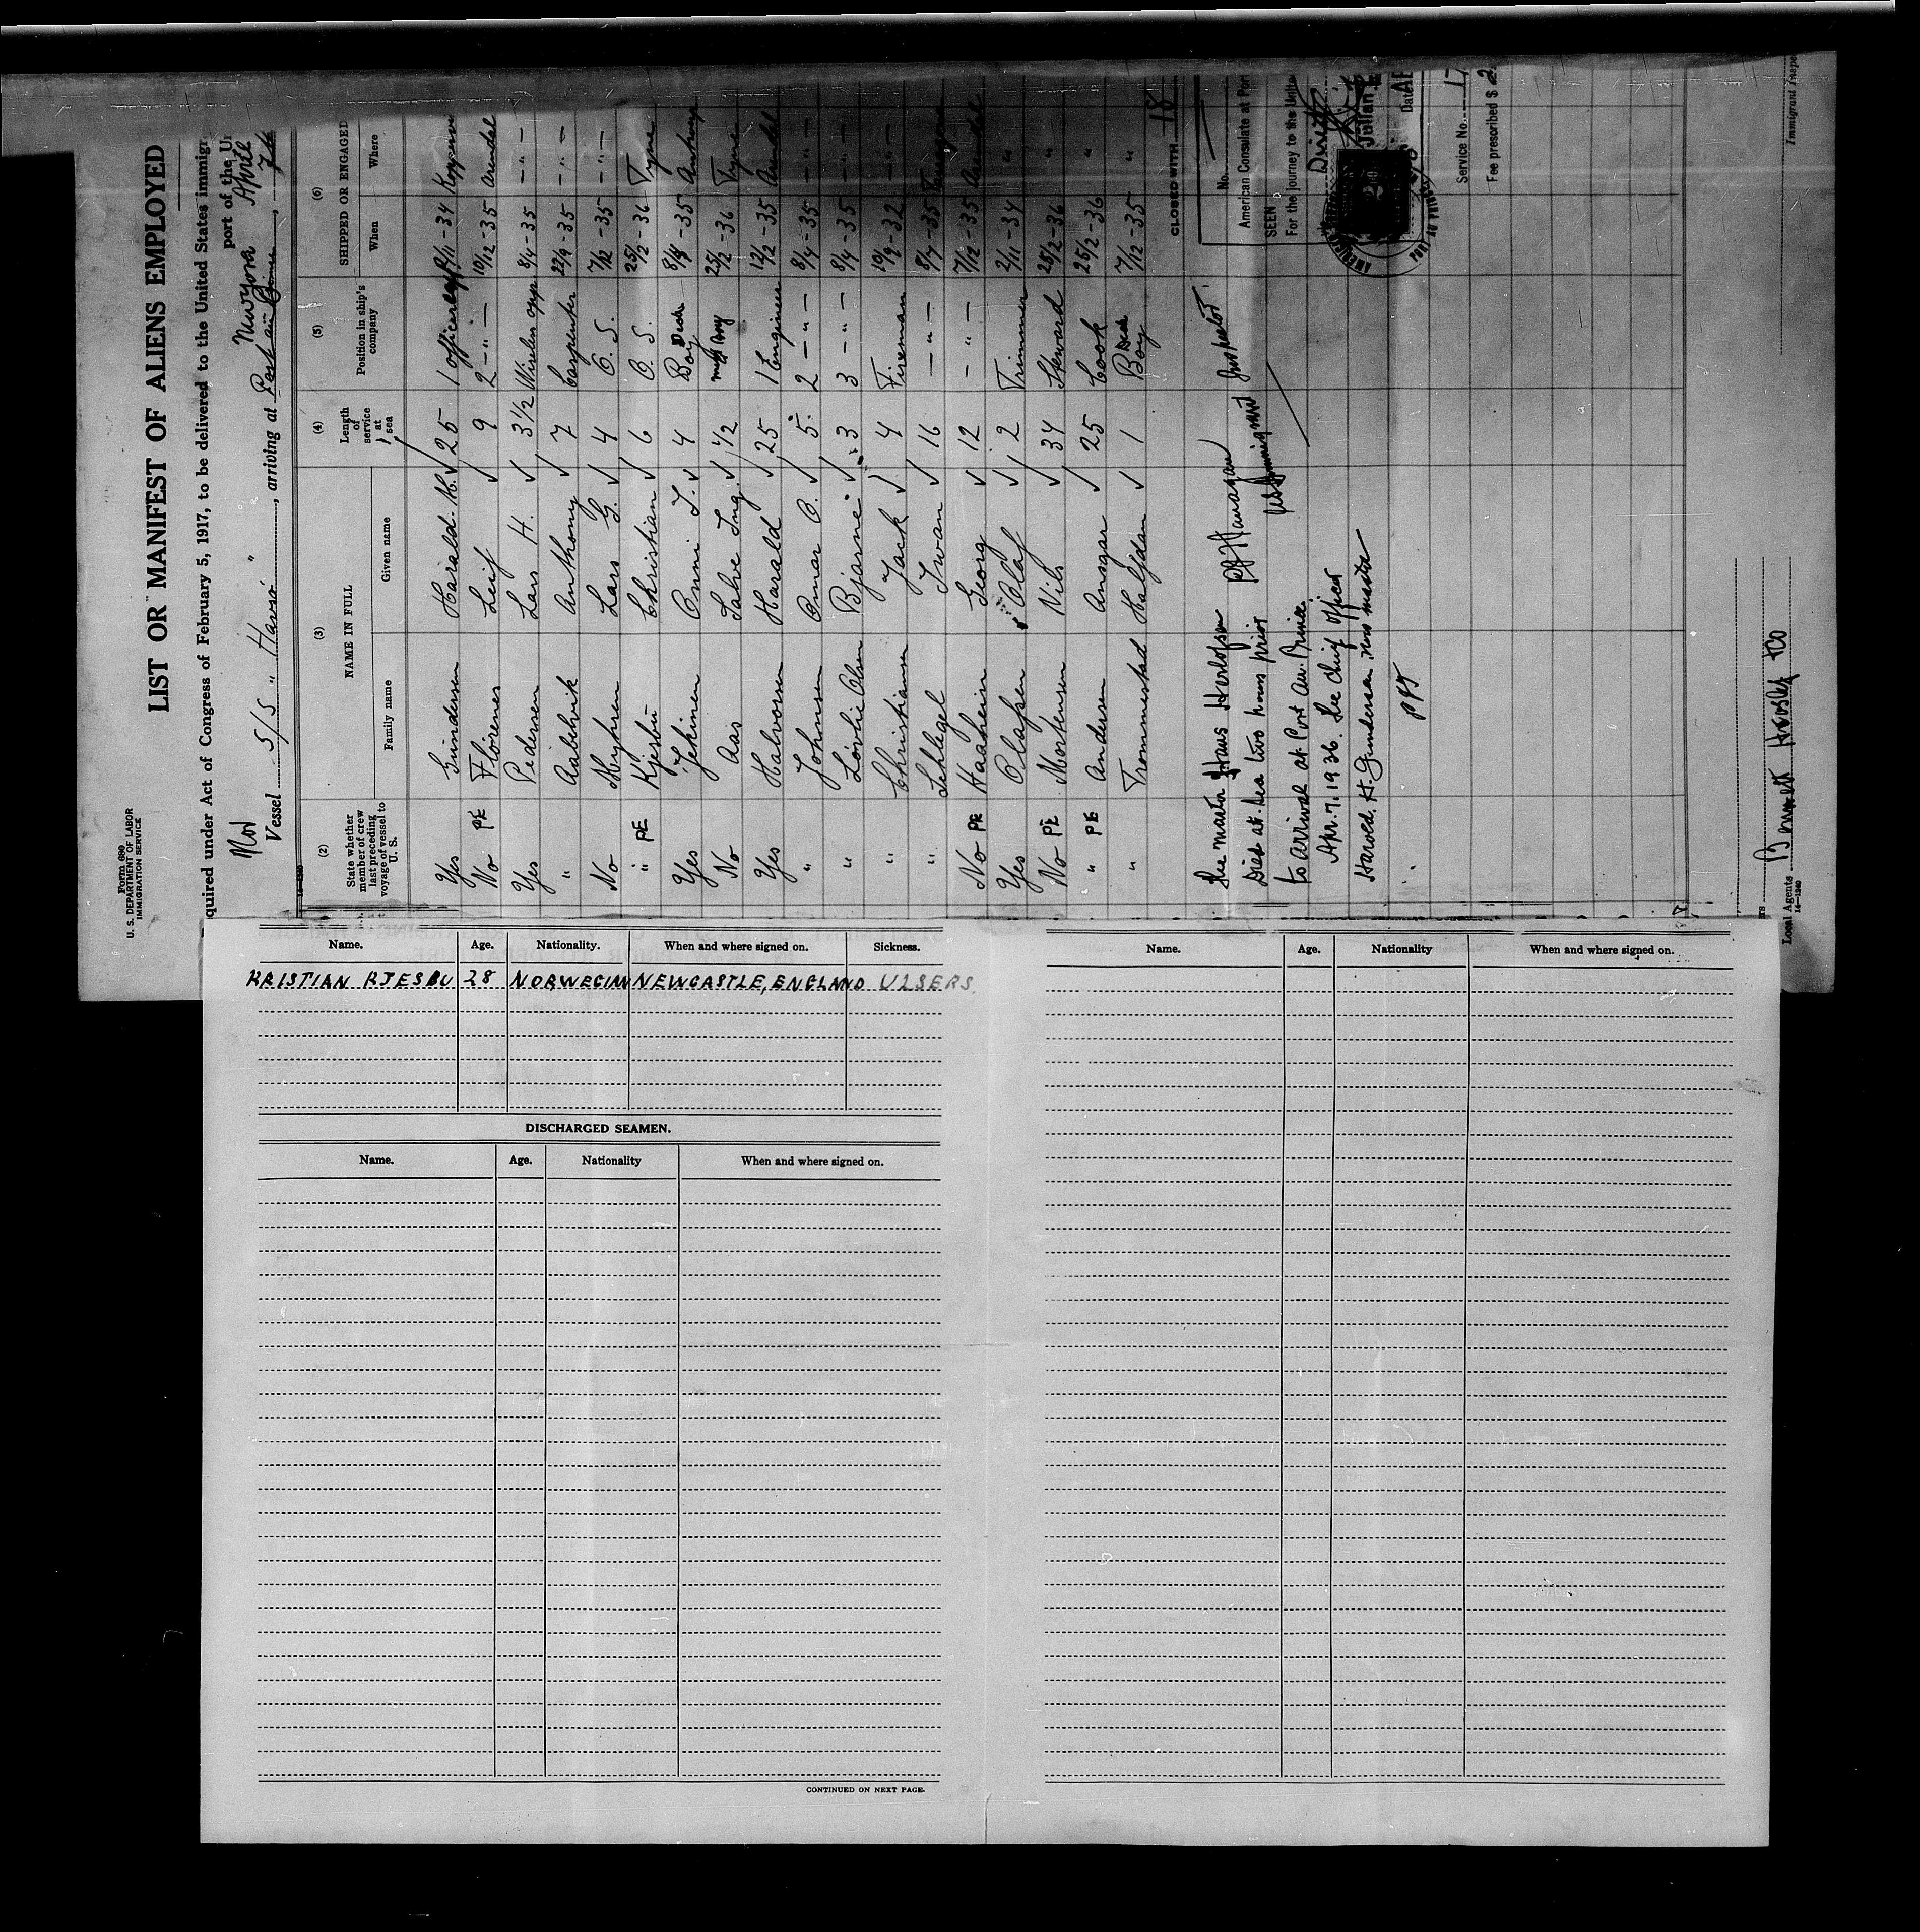 Form 680
U. S. DEPARTMENT OF LABOR
IMMIGRATION SERVICE
LIST OR MANIFEST OF ALIENS EMPLOYED
quired under Act of Congress of February 5, 1917, to be delivered to the United States immigr
port of the U
Nor Newyork April
Vessel S/S " Havsö " , arriving at Port au Prince , 7th
(2) (3) (4) (5) (6)
State whether member of crew last preceding voyage of vessel to U. S. NAME IN FULL Length of service at sea Position in ship's company SHIPPED OR ENGAGED
Family name Given name When Where
Yes Gundersen Harald. H. √ 25 1 officer 9/11 - 34
No PE Florenes Leif √ 9 2 — " — 10/12 - 35 Arendal
Yes Pedersen Lars H. √ 3 1/2 Wireless opp 8/4 - 35 — " —
" Aabelvik Anthony √ 7 Carpenter 27/9 - 35 — " —
No Myhren Lars G. √ 4 O. S. 7/12 - 35 — " —
" PE Kjesbu Christian √ 6 O. S. 25/2 - 36 Tyne
Yes Jekinen Onni J. √ 4 Deck Boy 8/4 - 35 Antwerp
No Aas Salve Ing. √ 1/2 mess boy 25/2 - 36 Tyne
Yes Halvorsen Harald √ 25 1 Engineer 12/12 - 35 Arendal
" Johnsen Omar O. √ 5 2 — " — 8/4 - 35 — " —
" Lovlie Olsen Bjarne √ 3 3 — " — 8/4 - 35 — " —
" Christiansen Jack √ 4 Fireman 10/9 - 32 — " —
" Schlegel Iwan √ 16 — " — 8/7 - 35
No PE Haaheim Georg √ 12 — " — 7/12 - 35 Arendal
Yes Olafsen Olaf √ 2 Trimmer 2/11 - 34 "
No PE Mortensen Nils √ 34 Steward 25/2 - 36 "
" PE Andersen Ansgar √ 25 Cook 25/2 - 36 "
" Trommestad Halfdan √ 1 Deck Boy 7/12 - 35 "
CLOSED WITH 18
The master Hans Herlofsen
Died at sea two hours prior
to arrival at Port au Prince
Apr. 7. 1936. The chief officer
Harald. H. Gundersen now master
Immigrant Inspector
No.
American Consulate at Port
SEEN
For the journey to the Unite
Direct
Julian
Date
Service No. 17
Fee prescribed $ 2
Local Agents
14—1240
Immigrant Inspe
Name. Age. Nationality. When and where signed on. Sickness.
KRISTIAN KJESBU 28 NORWEGIAN NEWCASTLE, ENGLAND ULSERS.
DISCHARGED SEAMEN.
Name. Age. Nationality When and where signed on.
CONTINUED ON NEXT PAGE.
Name. Age. Nationality When and where signed on.